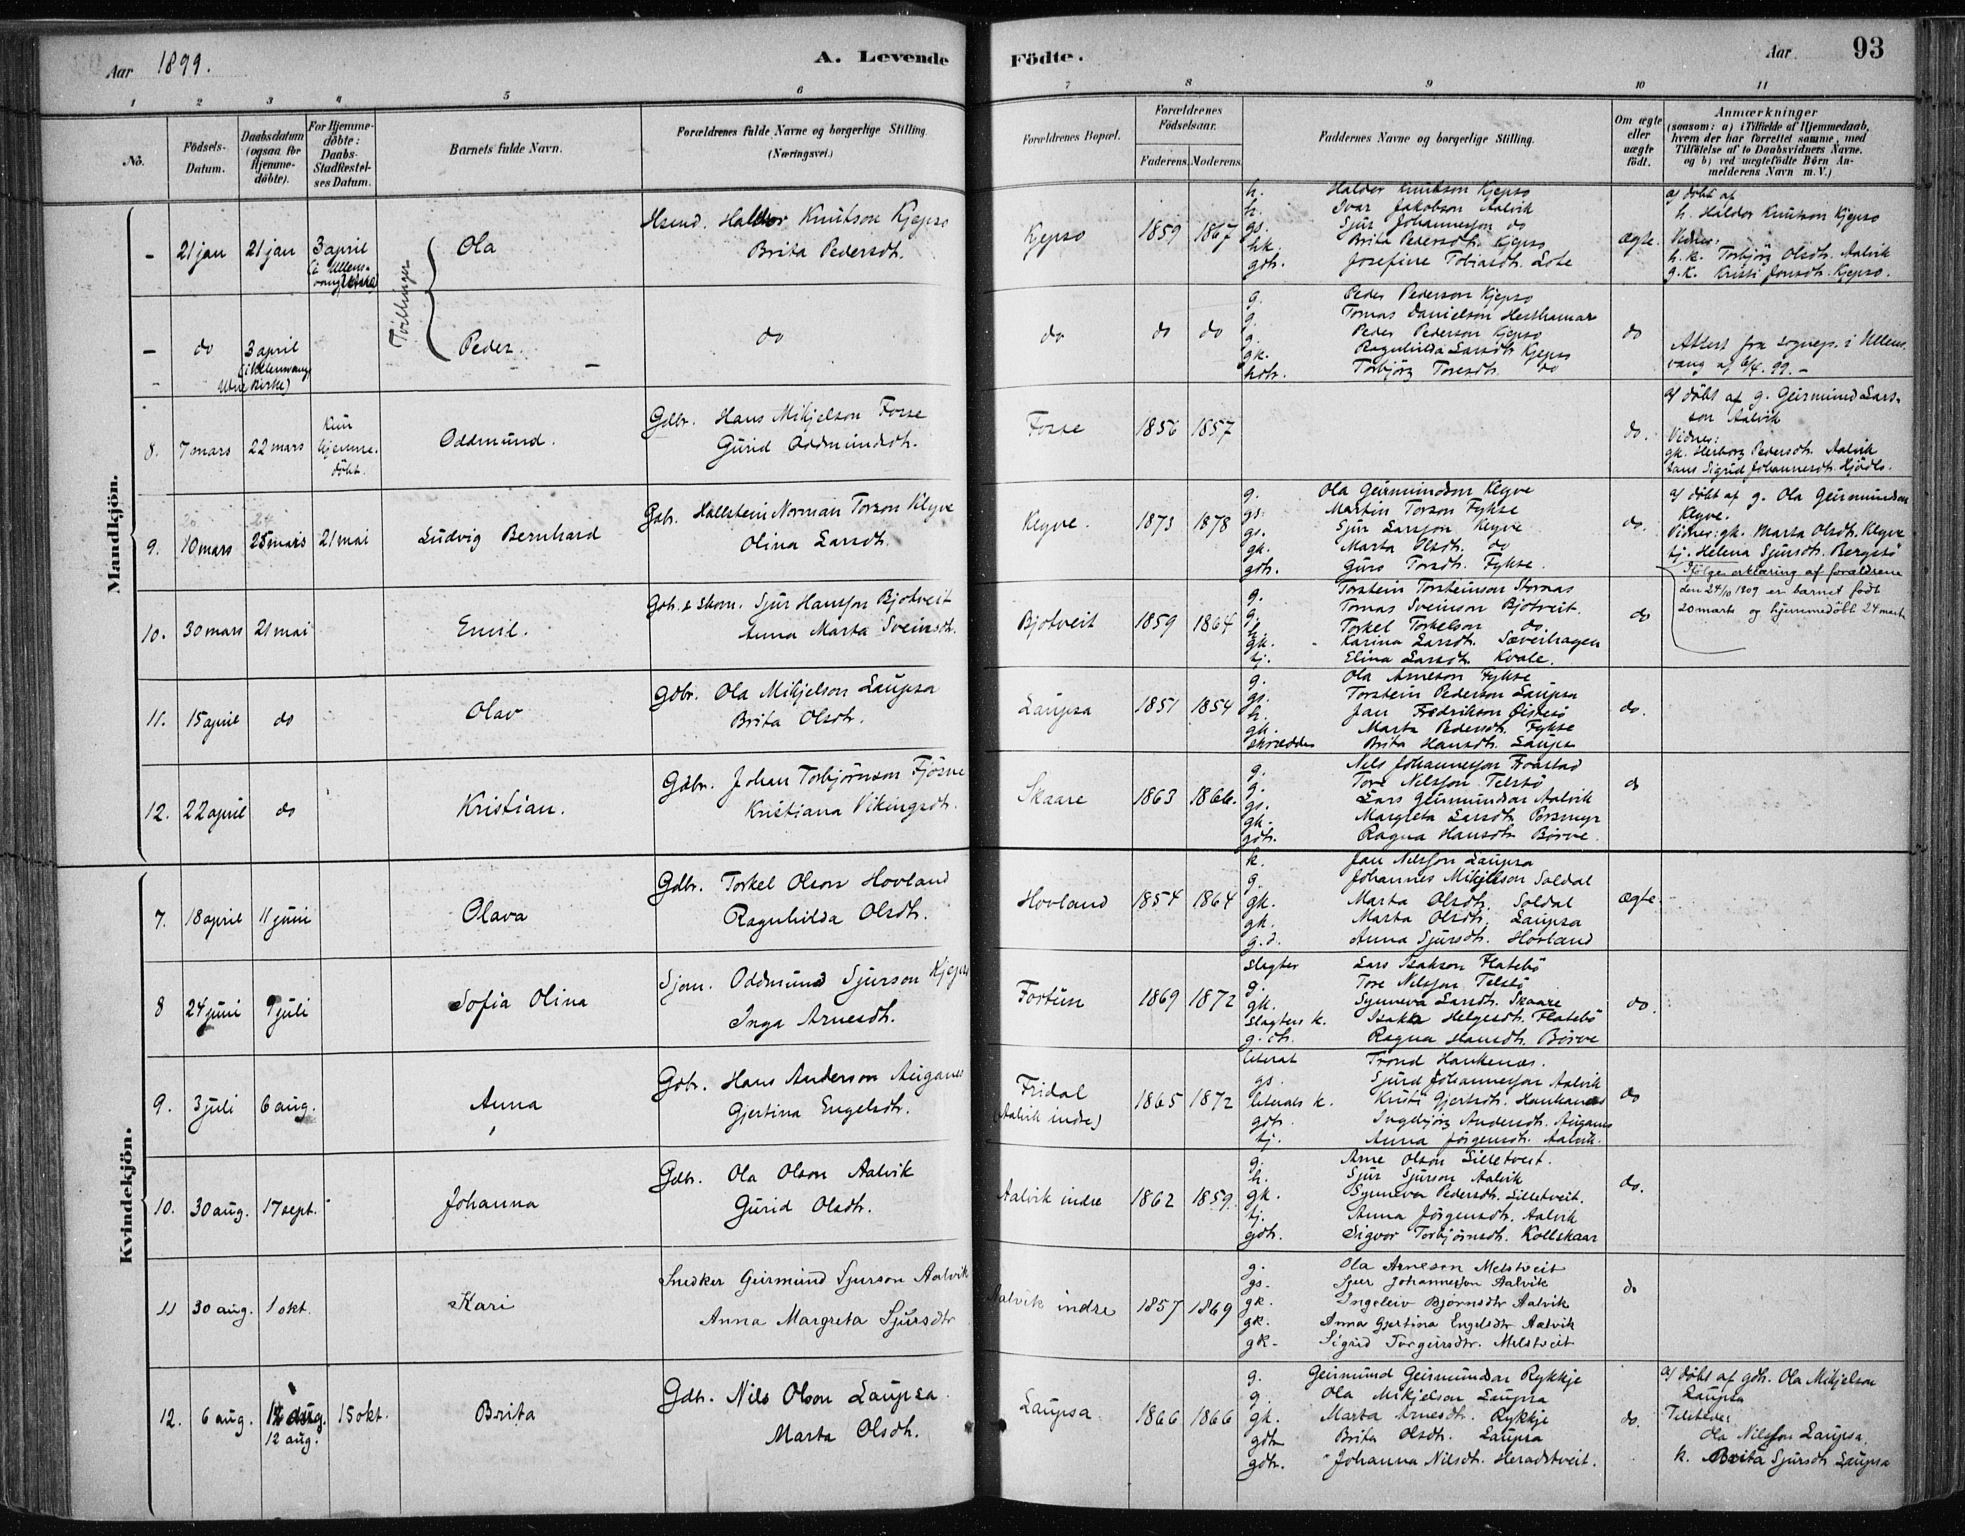 Aar 1899.
A. Levende
Födte.
Aar
93
1 2 3 4 5 6 7 8 9 10 11
No.
Födsels-
Datum.
Daabsdatum
(ogsaa for
Hjemme-
döbte).
For Hjemme-
döbte:
Daabs-
Stadfæstel-
ses Datum.
Barnets fulde Navn.
Forældrenes fulde Navne og borgerlige Stilling.
(Næringsvei.)
Forældrenes Bopæl.
Forældrenes
Födselsaar.
Faderens.
Moderens.
Faddernes Navne og borgerlige Stilling.
Om ægte
eller
uægte
født.
Anmærkninger
(saasom: a) i Tilfælde af Hjemmedaab,
hvem der har forrettet samme, med
Tilföielse af to Daabsvidners Navne,
og b) ved uægtefödte Børn An-
melderens Navn m. V.)
Mandkjön.
- 21 jan 21 jan 3 april
(i Ullens-
vang kirke)
Tvillinger
Ola
Husmd. Haldor Knutson Kjepso
Brita Pedersdt.
Kjepso 1859 1867
h. Haldor Knutson Kjepso
h. Ivar Jakobson Aalvik
gs. Sjur Johannesson do
hk. Brita Pedersdt. Kjepso
gdt. Josefine Tobiasdt. Lote
ægte.
a) döbt af
h. Haldor Knutson Kjepso
Vidner:
h.k. Torbjörg Olsdt. Aalvik
g.k. Kristi Jonsdt. Kjepso.
- do 3 april
(i Ullensvang
kirke)
Peder.
do
do do do
g. Peder Pederson Kjepso
g. Tomas Danielson Hesthamar
g. Peder Pederson Kjepso
gk. Ragnhilda Larsdt. Kjepso
hdt. Torbjörg Toresdt. do
do
Attest fra sognep. i Ullens-
vang af 6/4. 99. -
8. 7 mars 22 mars Kun
hjemme-
döbt.
Oddmund.
Gdbr. Hans Mikjelson Fosse
Gurid Oddmundsdt.
Fosse 1856 1857
do.
a) döbt af g. Geirmund Lars-
son Aalvik
Vidner:
gk. Herborg Pedersdt. Aalvik
Sigrid Johannesdt.
9. 10 mars 25 mars 21 mai
Ludvig Bernhard
Gdbr. Hallstein Norman Torson Klyve
Olina Larsdt.
Klyve. 1873 1878
g. Ola Geirmundson Klyve
gs. Martin Torson Fykse
gs. Sjur Larsson Klyve
gk. Marta Olsdt. do
gdt. Guro Torsdt. Fykse.
do.
a) döbt af g. Ola Geirmundson
Klyve.
Vidner: gk. Marta Olsdt. Klyve
tj. Helena Sjursdt. Bergstö
Ifölge erklæring af forældrene
den 24/10 1909 er barnet födt
20 marts og hjemmedöbt 24 marts
10. 30 mars 21 mai
Emil.
Gdb. & skom. Sjur Hansson Bjotveit
Anna Marta Sveinsdt.
Bjotveit 1859 1864
g. Torstein Torsteinson Stornæs
g. Tomas Sveinson Bjotveit.
g. Torkel Torkelson do.
gk. Karina Larsdt. Sæverhagen
tj. Elina Larsdt. Kvale.
do
11. 15 april do
Olav
Gdbr. Ola Mikjelson Laupsa
Brita Olsdt.
Laupsa 1851 1854
g. Ola Arneson Fykse
gs. Torstein Pederson Laupsa
h. Jan Fredrikson Öistesö
gk. Marta Pedersdt. Fykse
skrædder Brita Hansdt. Laupsa
do.
12. 22 april do
Kristian.
Gdbr. Johan Torbjörnson Fjösne
Kristiana Vikingsdt.
Skaare 1863 1866.
g. Nils Johannesson Froastad
g. Tore Nilsson Telstö
gs. Lars Geirmundson Aalvik
gk. Margreta Larsdt. Porsmyr
gdt. Ragna Hansdt. Börve.
do
Kvindekjön.
7. 18 april 11 juni
Olava
Gdbr. Torkel Olson Hovland
Ragnhilda Olsdt.
Hovland 1854 1864
k. Jan Nilsson Laupsa
g. Johannes Mikjelson Soldal
gk. Marta Olsdt. Soldal
gk. Marta Olsdt. Laupsa
g.d. Anna Sjursdt. Hovland
ægte.
8 24 juni 9 juli
Sofia Olina
Sjom. Oddmund Sjurson Kjepso
Inga Arnesdt.
Fortun 1869 1872
Slagter Lars Isakson Flatebö
g. Tore Nilsson Telstö
gk. Synneva Larsdt. Skaare
Slagters k. Isakka Helgesdt. Flatebö
g.dt. Ragna Hansdt. Börve
do.
9. 3 juli 6 aug.
Anna
Gdbr. Hans Anderson Auganes
Gjertina Engelsdt.
Fridal
(Aalvik indre)
1865 1872
literat Trond Haukenes.
gs. Sjurd Johannesson Aalvik
literats k. Kristi Gjertsdt. Haukanæs
gdt. Ingebjörg Andersdt. Auganes
tj. Anna Jörgensdt. Aalvik.
do
10. 30 aug. 17 sept.
Johanna
Gdbr. Ola Olson Aalvik
Gurid Olsdt.
Aalvik indre 1862 1859.
g. Arne Olson Lilletveit.
h. Sjur Sjurson Aalvik
gk. Synneva Pedersdt. Lilletveit.
tj. Anna Jörgensdt. Aalvik
gdt. Sigvor Torbjörnsdt. Kollskaar
do.
11 30 aug. 1 okt.
Kari
Snedker Geirmund Sjurson Aalvik
Anna Margreta Sjursdtr
Aalvik indre 1857 1869
g. Ola Arneson Melstveit
gs. Sjur Johannesson Aalvik
gk. Ingeleiv Bjørnsdtr Aalvik
gk. Anna Gjertina Engelsdtr Aalvik
gk- Sigrid Torgeirsdtr. Melstveit
do
12. 6 aug. 12 aug. 15 okt.
12 aug.
Brita
Gdb. Nils Olson Laupsa
Marta Olsdt.
Laupsa 1866 1866
g. Geirmund Geirmundson Rykkje
g. Ola Mikjelson Laupsa
gk. Marta Arnesdt. Rykkje
gdt. Brita Olsdt. Laupsa
gdt. Johanna Nilsdt. Heradstveit.
do.
a) döbt af gdb. Ola Mikjelson
Laupsa
Tilstede:
Ola Nilsson Laupsa.
k. Brita Sjursdt. Laupsa